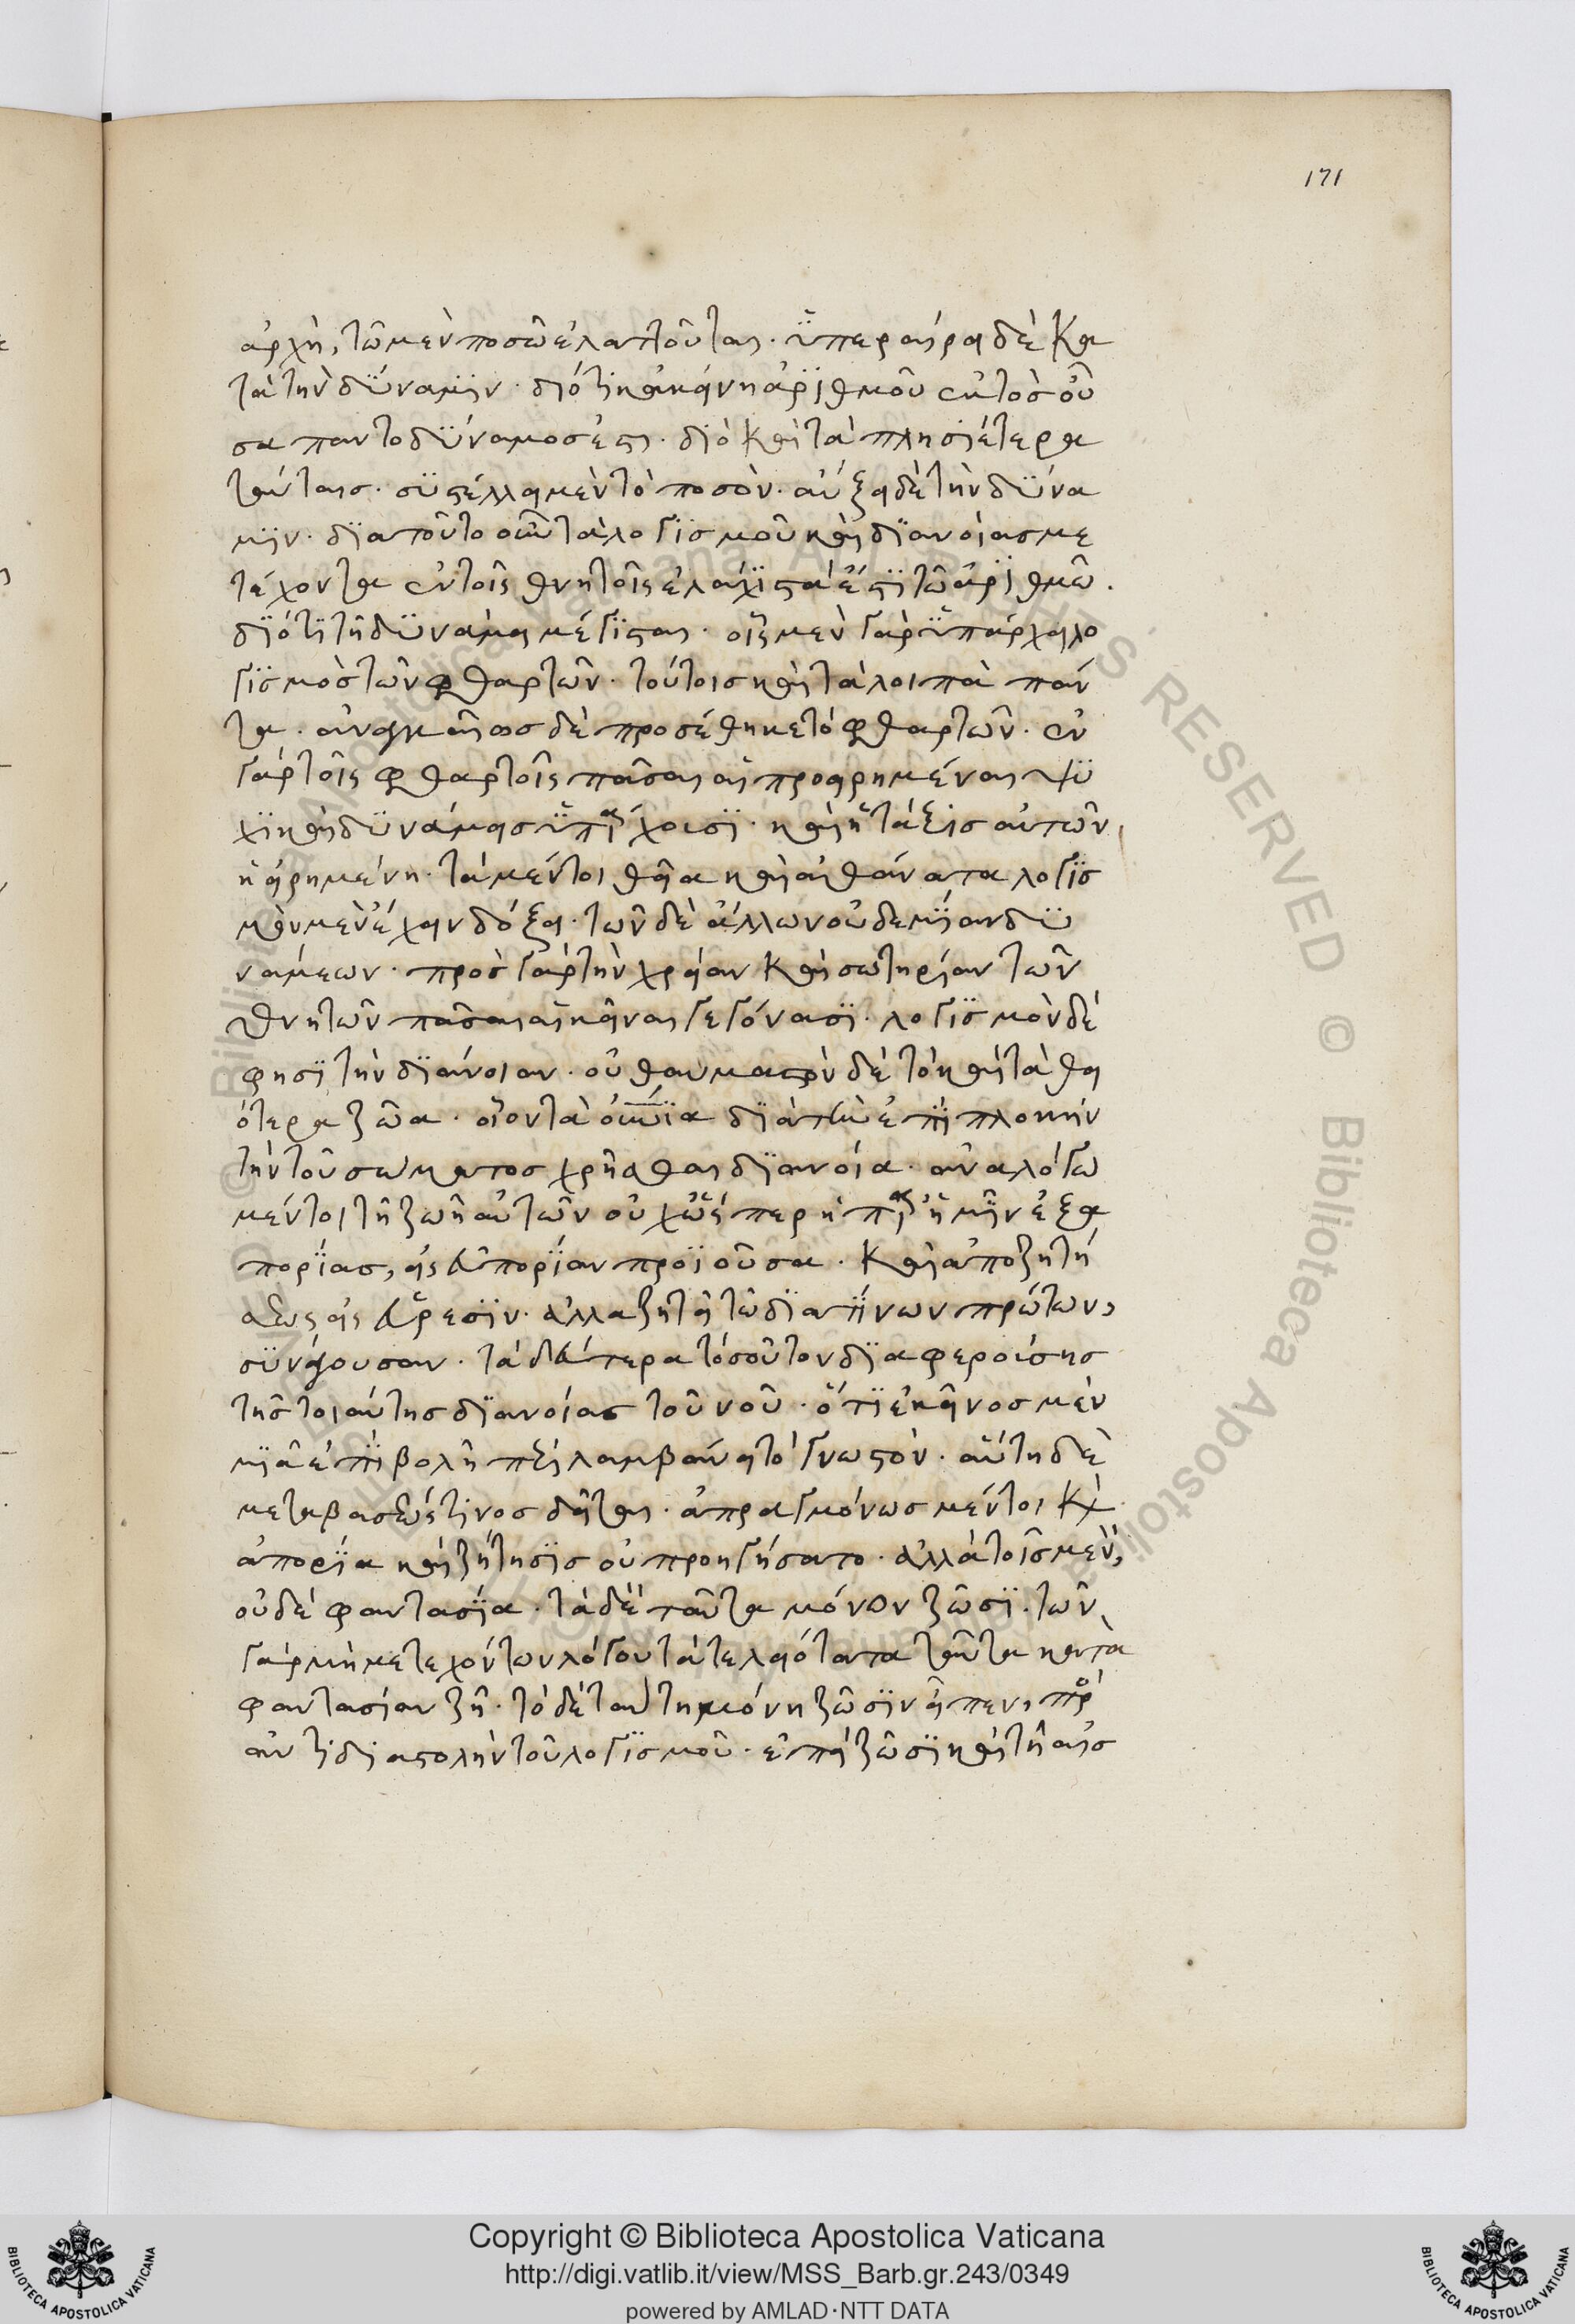 171
ἀρχὴ, τῶ μὲν ποσῶ ἐλαττοῦται. ὑπεραίρει δὲ κα
τὰ τὴν δύναμιν. διότι κἀκείνη ἀριθμοῦ ἐκτὸς οὖ
σα παντοδύναμος ἐστι. διὸ καὶ τὰ πλησιέτερα
ταύταις. συστέλλει μὲν τὸ ποσὸν. αὔξει δὲ τὴν δύνα
μιν. διατοῦτο οὖν τὰ λογισμοῦ καὶ διανοίας με
τέχοντα ἐν τοῖς θνητοῖς ἐλάχιστα ἐστὶ τῶ ἀριθμῶ.
διότι τῆ δυνάμει μέγισται. οἷς μὲν γὰρ ὑπάρχει λο
γισμὸς τῶν φθαρτῶν. τούτοις καὶ τὰ λοιπὰ πάν
τα. ἀναγκαίως δὲ προσέθηκε τὸ φθαρτῶν. ἐν
γὰρ τοῖς φθαρτοῖς πᾶσαι αἱ προειρημέναι ψυ
χικαὶ δυνάμεις ὑπάρχουσι. καὶ ἡ τάξις αὐτῶν
ἡ εἰρημένη. τὰ μέντοι θεῖα καὶ ἀθάνατα λογισ
μὸν μὲν ἔχειν δόξει. τῶν δὲ ἄλλων οὐδεμίαν δυ
νάμεων. πρὸς γὰρ τὴν χρείαν καὶ σωτηρίαν τῶν
θνητῶν πᾶσαι αἱ κεῖναι γεγόνασι. λογισμὸν δέ
φησι τὴν διάνοιαν. οὐ θαυμαστὸν δὲ τὸ καὶ τὰ θει
ότερα ζῶα. οἷον τὰ οὐράνια διὰ τὴν ἐπιπλοκὴν
τὴν τοῦ σώματος χρῆσθαι διανοία. ἀναλόγω
μέντοι τῆ ζωῆ αὐτῶν οὐχ ὥσπερ ἡ παρ' ἡμῖν ἐξ α
πορίας, εἰς εὐπορίαν προϊοῦσα. καὶ ἀπὸ ζητή
σεως εἰς εὕρεσιν. ἀλλα ζητεῖ τῶ διὰ τίνων πρώτων,
συνάγουσαν. τὰ δεύτερα τοσοῦτον διαφερούσης
τῆς τοιαύτης διανοίας τοῦ νοῦ. ὅτι ἐκεῖνος μὲν
μιᾶ ἐπιβολῆ περιλαμβάνει τὸ γνωστόν. αὕτη δὲ
μεταβάσεώς τινος δεῖται. ἀπραγμόνως μέντοι καὶ
ἀπορία καὶ ζήτησις οὐ προηγήσατο. ἀλλὰ τοῖς μὲν,
οὐδὲ φαντασία. τὰ δὲ ταῦτα μόνον ζῶσι. τῶν
γὰρ μὴ μετεχόντων λόγου τὰ τελειότατα ταῦτα κατὰ
φαντασίαν ζῆ. τὸ δὲ ταύτη μόνη ζῶσιν εἶπεν, πρὸς
ἀντιδιαστολὴν τοῦ λογισμοῦ. ἐπεὶ ζῶσι καὶ τῆ αἰσ
Copyright © Biblioteca Apostolica Vaticana
http://digi.vatlib.it/view/MSS_Barb.gr.243/0349
powered by AMLAD·NTT DATA